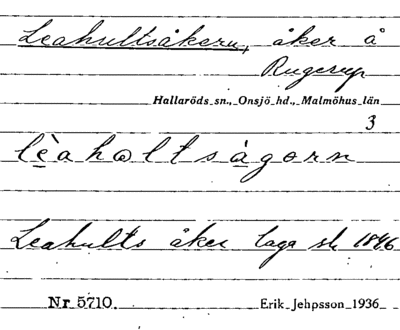 Leahultsåkern, åker å
Rugerup
Hallaröds sn., Onsjö hd., Malmöhus län
3
lèahωltsågørn
Leahults åker laga sk 1846
Nr 5710. Erik Jehpsson 1936